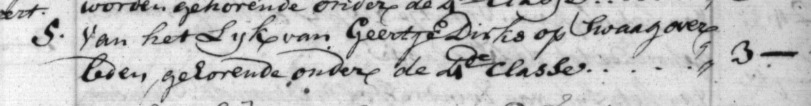 worden gehorende onder de 4de Classe . .
5. Van het Lyk van Geertje Dirks op Swaag over
leden, gehorende onder de 4de Classe . . . . . „ 3 —